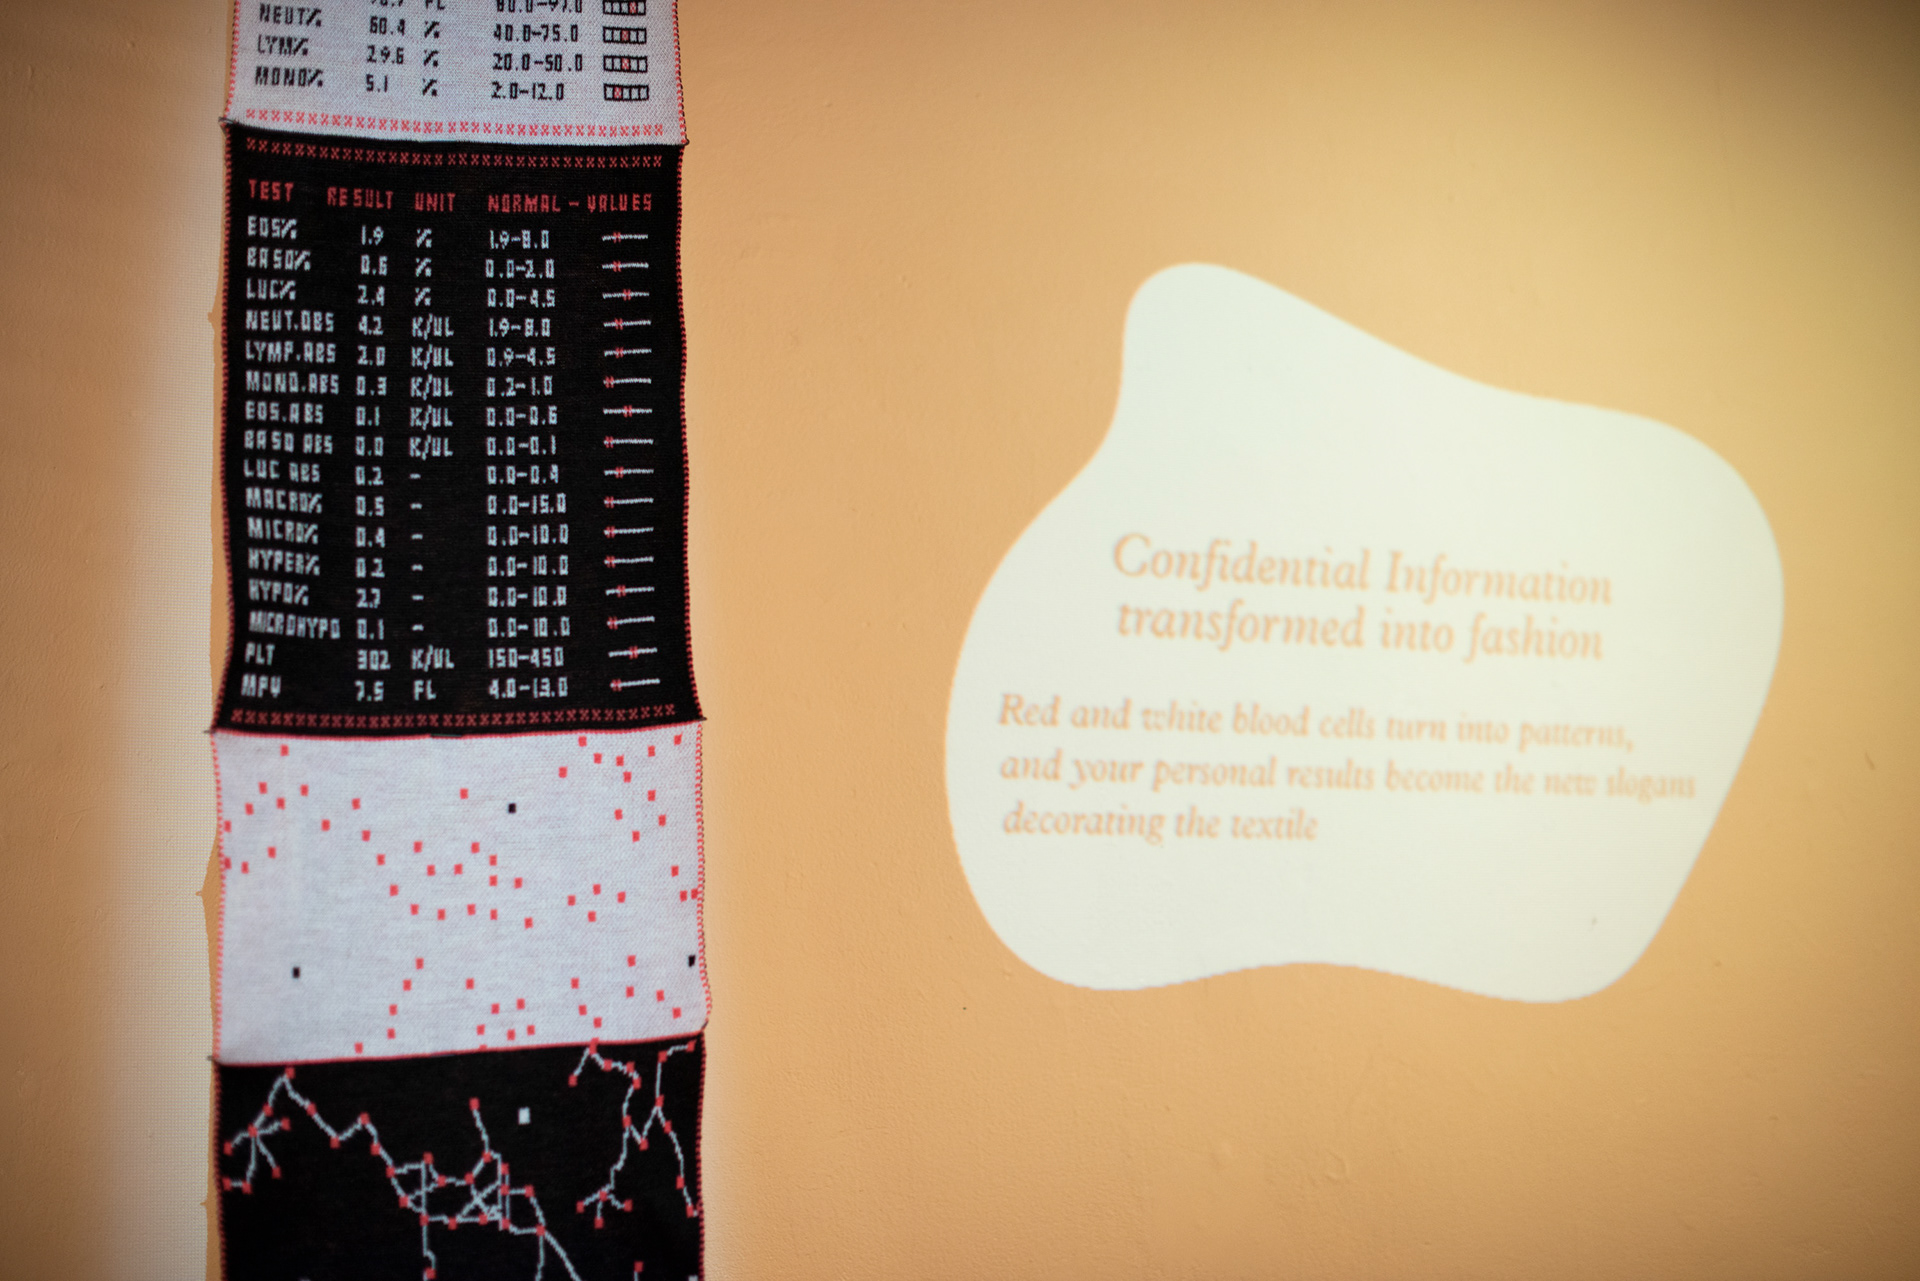 FL 80.0-97.0
NEUT% 60.4 % 40.0-75.0
LYM% 29.6 % 20.0-50.0
MONO% 5.1 % 2.0-12.0
TEST RESULT UNIT NORMAL - VALUES
EOS% 1.9 % 1.9-8.0
BASO% 0.6 % 0.0-2.0
LUC% 2.4 % 0.0-4.5
NEUT.ABS 4.2 K/UL 1.9-8.0
LYMP.ABS 2.0 K/UL 0.9-4.5
MONO.ABS 0.3 K/UL 0.2-1.0
EOS.ABS 0.1 K/UL 0.0-0.6
BASO ABS 0.0 K/UL 0.0-0.1
LUC ABS 0.2 - 0.0-0.4
MACRO% 0.5 - 0.0-15.0
MICRO% 0.4 - 0.0-10.0
HYPER% 0.2 - 0.0-10.0
HYPO% 2.7 - 0.0-10.0
MICROHYPO 0.1 - 0.0-10.0
PLT 302 K/UL 150-450
MPV 7.5 FL 4.0-13.0
Confidential Information
transformed into fashion
Red and white blood cells turn into patterns,
and your personal results become the new slogans
decorating the textile